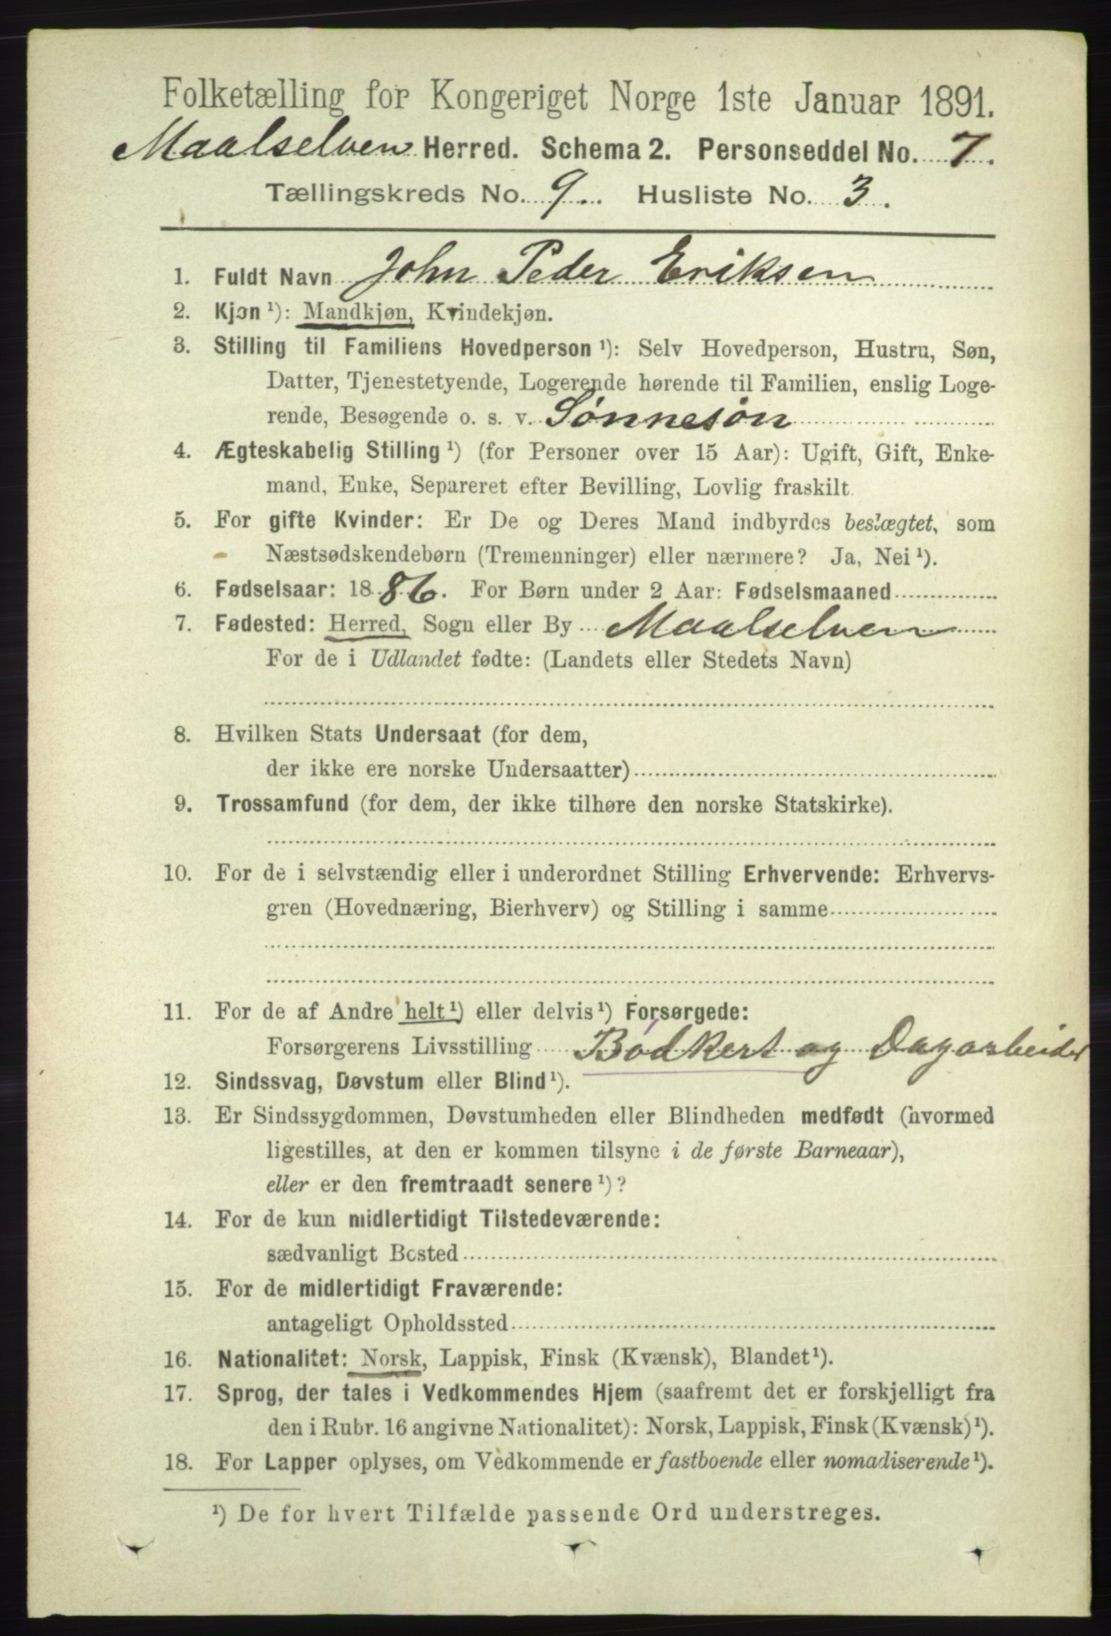 Folketælling for Kongeriget Norge 1ste Januar 1891.
Maalselven Herred. Schema 2. Personseddel No. 7.
Tællingskreds No. 9. Husliste No. 3.
1. Fuldt Navn John Peder Eriksen
2. Kjøn ¹): Mandkjøn, Kvindekjøn.
3. Stilling til Familiens Hovedperson ¹): Selv Hovedperson, Hustru, Søn,
Datter, Tjenestetyende, Logerende hørende til Familien, enslig Loge-
rende, Besøgende o. s. v. Sønnesøn
4. Ægteskabelig Stilling ¹) (for Personer over 15 Aar): Ugift, Gift, Enke-
mand, Enke, Separeret efter Bevilling, Lovlig fraskilt.
5. For gifte Kvinder: Er De og Deres Mand indbyrdes beslægtet, som
Næstsødskendebørn (Tremenninger) eller nærmere? Ja, Nei ¹).
6. Fødselsaar: 1886. For Børn under 2 Aar: Fødselsmaaned
7. Fødested: Herred, Sogn eller By Maalselven
For de i Udlandet fødte: (Landets eller Stedets Navn)
8. Hvilken Stats Undersaat (for dem,
der ikke ere norske Undersaatter)
9. Trossamfund (for dem, der ikke tilhøre den norske Statskirke).
10. For de i selvstændig eller i underordnet Stilling Erhvervende: Erhvervs-
gren (Hovednæring, Bierhverv) og Stilling i samme
11. For de af Andre helt ¹) eller delvis ¹) Forsørgede:
Forsørgerens Livsstilling Bødkert og Dagarbeider
12. Sindssvag, Døvstum eller Blind ¹).
13. Er Sindssygdommen, Døvstumheden eller Blindheden medfødt (hvormed
ligestilles, at den er kommen tilsyne i de første Barneaar),
eller er den fremtraadt senere ¹)?
14. For de kun midlertidigt Tilstedeværende:
sædvanligt Bosted
15. For de midlertidigt Fraværende:
antageligt Opholdssted
16. Nationalitet: Norsk, Lappisk, Finsk (Kvænsk), Blandet ¹).
17. Sprog, der tales i Vedkommendes Hjem (saafremt det er forskjelligt fra
den i Rubr. 16 angivne Nationalitet): Norsk, Lappisk, Finsk (Kvænsk) ¹).
18. For Lapper oplyses, om Vedkommende er fastboende eller nomadiserende ¹).
¹) De for hvert Tilfælde passende Ord understreges.